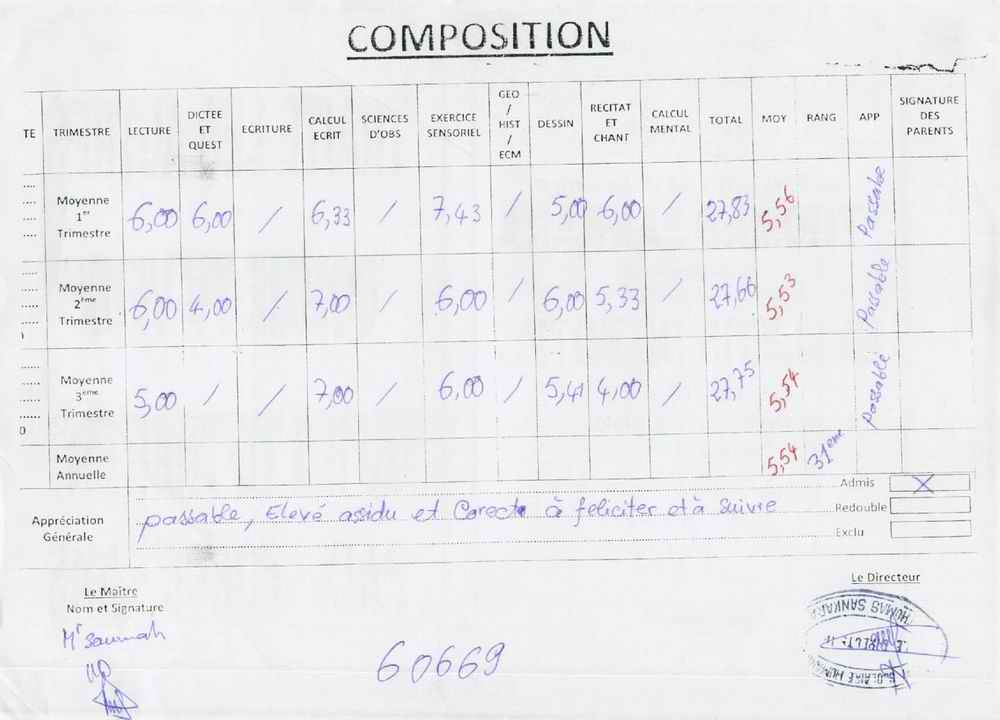 COMPOSITION
TE TRIMESTRE LECTURE DICTEE ET QUEST ECRITURE CALCUL ECRIT SCIENCES D'OBS EXERCICE SENSORIEL GEO / HIST / ECM DESSIN RECITAT ET CHANT CALCUL MENTAL TOTAL MOY RANG APP SIGNATURE DES PARENTS
Moyenne 1er Trimestre 6,00 6,00 / 6,33 / 7,43 / 5,00 6,00 / 27,83 5,56 Passable
Moyenne 2ème Trimestre 6,00 4,00 / 7,00 / 6,00 / 6,00 5,33 / 27,66 5,53 Passable
Moyenne 3ème Trimestre 5,00 / / 7,00 / 6,00 / 5,41 4,00 / 27,75 5,54 Passable
Moyenne Annuelle 5,54 31ème
Appréciation Générale
passable, Elevé assidu et Corect à feliciter et à Suivre
Admis X
Redouble
Exclu
Le Maître
Nom et Signature
Mr
Le Directeur
THOMAS SANKARA
60669